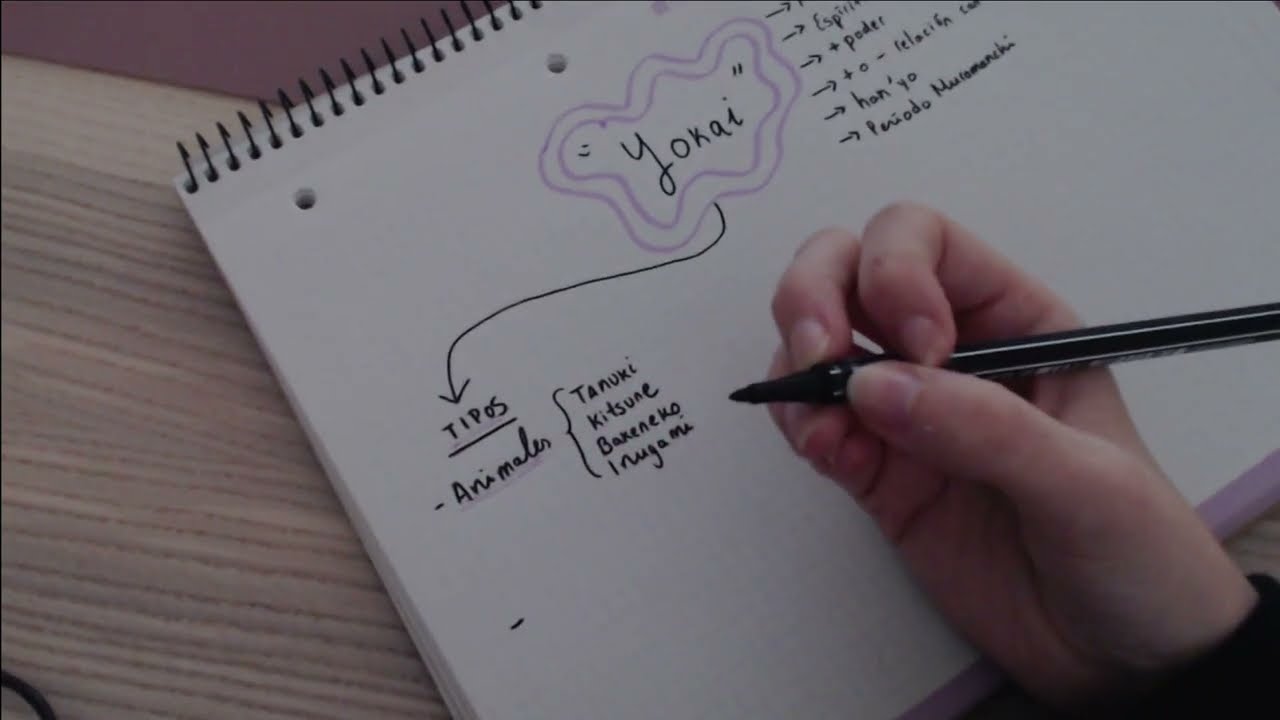 "Yokai"
→ Espiri
→ + poder
→ + o - relación con
→ han'yo
→ Periodo Muromachi
TIPOS
- Animales
Tanuki
Kitsune
Bakeneko
Inugami
-